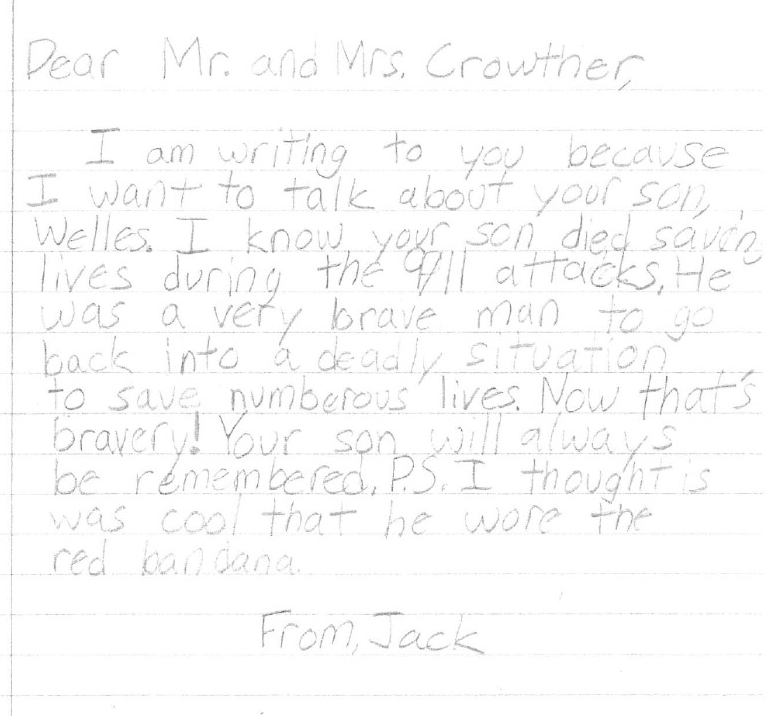 Dear Mr. and Mrs. Crowther,
I am writing to you because
I want to talk about your son,
Welles. I know your son died savin
lives during the 9/11 attacks. He
was a very brave man to go
back into a deadly situation
to save numberous lives. Now that's
bravery! Your son will always
be remembered. P.S. I thought is
was cool that he wore the
red bandana.
From, Jack